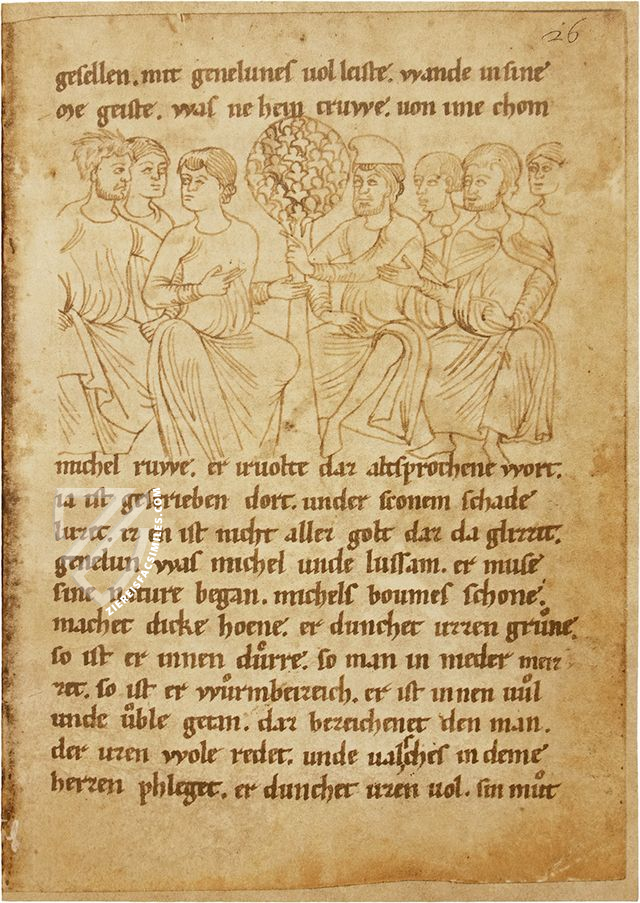 26
gesellen. mit genelunes uolleiste. wande in sine
me geiste. was nehein truwe. uon ime chom
michel ruwe. er iruolte daz altsprochene wort.
ia ist gescrieben dort. under sconem schade
luzet. iz en ist nicht allez golt daz da glizzit.
genelun was michel unde lussam. er muse
sine nature began. michels boumes schone.
machet dicke hoene. er dunchet uzzen grůne.
so ist er innen důrre. so man in nieder
so ist er wůrmbeizeich. er ist innen uůl
unde ůble getan. daz bezeichenet den man.
der uzen wole redet. unde ualsches in deme
herzen phleget. er dunchet uzen uol. sin můt
ZIEREISFACSIMILES.COM